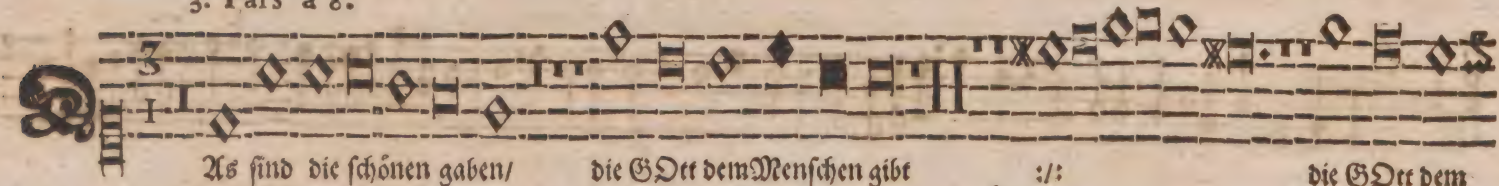 3. Pars à 8.
3
1
DAs sind die schönen gaben/ die GOtt dem Menschen gibt :/: die GOtt dem